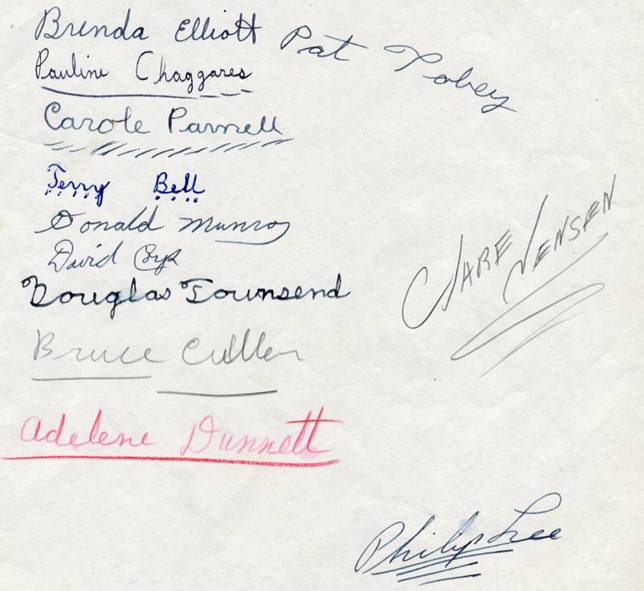 Brenda Elliott
Pat Tobey
Pauline Chaggares
Carole Parnell
Terry Bell
Donald Munroy
David
Douglas Townsend
Bruce Cullen
Adelene Dunnett
Philip Lee
JENSEN